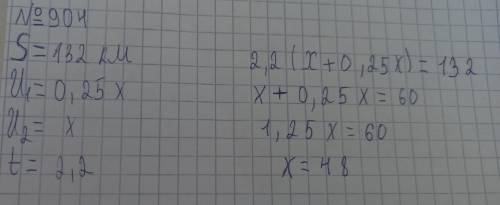 №904
S = 132 км
U₁ = 0,25 x
U₂ = x
t = 2,2
2,2 (x + 0,25x) = 132
x + 0,25 x = 60
1,25 x = 60
x = 48